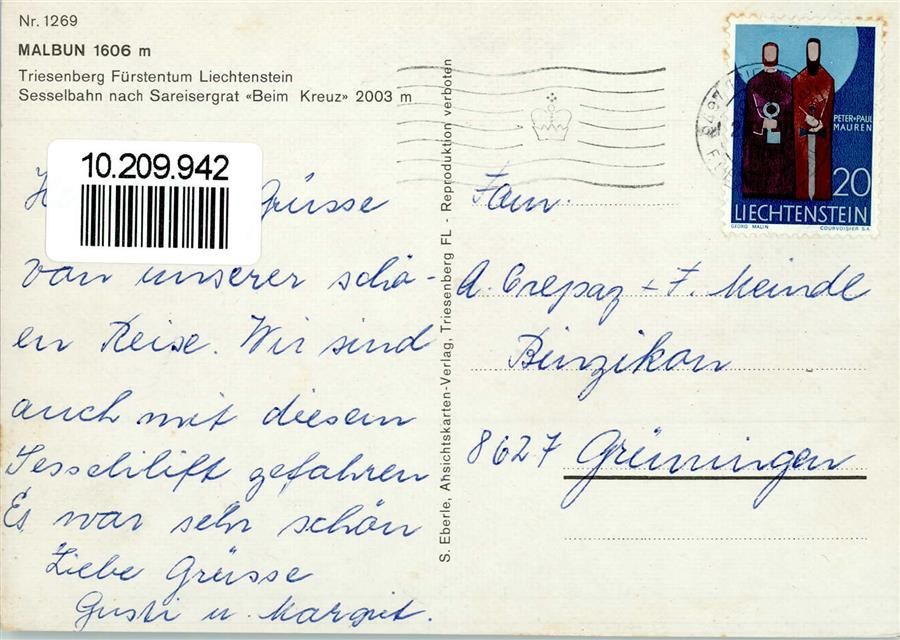 Nr. 1269
MALBUN 1606 m
Triesenberg Fürstentum Liechtenstein
Sesselbahn nach Sareisergrat «Beim Kreuz» 2003 m
10.209.942
Grüsse
von unserer schö-
en Reise. Wir sind
auch mit diesem
Sesselilift gefahren
Es war sehr schön
Liebe Grüsse
Gusti u. Margrit.
S. Eberle, Ahsichtskarten-Verlag, Triesenberg FL - Reproduktion verboten
PETER+PAUL
MAUREN
20
LIECHTENSTEIN
GEORG MALIN COURVOISIER S.A.
Fam.
A. Crepaz + F. Meindl
Binzikon
8627 Grüningen